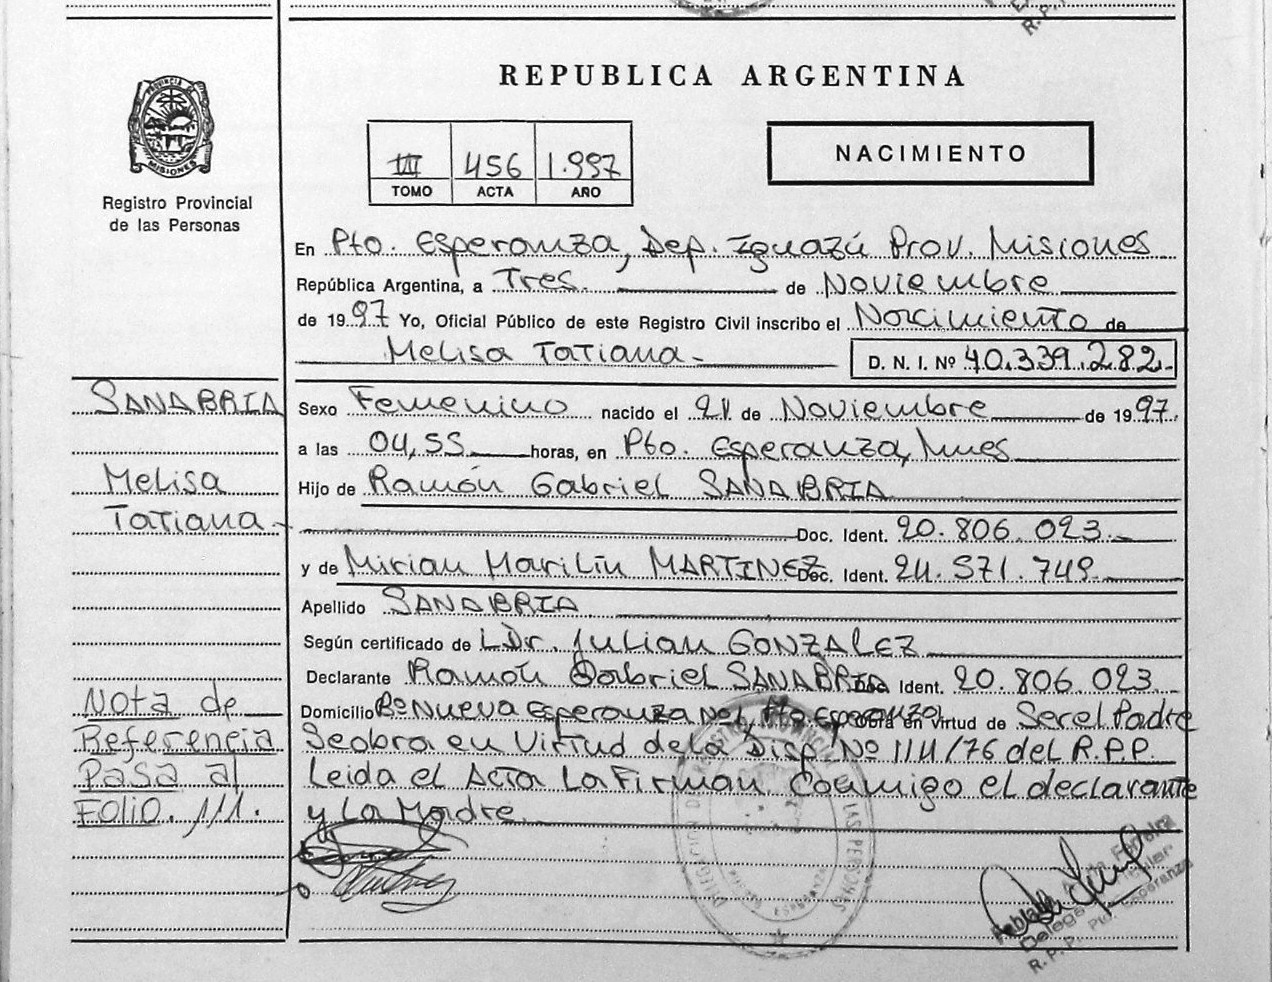 REPUBLICA ARGENTINA
PROVINCIA DE MISIONES
Registro Provincial
de las Personas
III 456 1.997
TOMO ACTA AÑO
NACIMIENTO
En Pto. Esperanza, Dep. Iguazú Prov. Misiones
República Argentina, a Tres. de Noviembre
de 1997 Yo, Oficial Público de este Registro Civil inscribo el Nacimiento de
Melisa Tatiana-
D. N. I. Nº 40.339.282.-
SANABRIA
Melisa
Tatiana-
Sexo Femenino nacido el de Noviembre de 1997.
a las 04,55 horas, en Pto. Esperanza, Mnes
Hijo de Ramón Gabriel SANABRIA
Doc. Ident. 20.806.023.-
y de Mirian Marilin MARTINEZ Doc. Ident. 24.571.749
Apellido SANABRIA
Según certificado de Dr. Julian GONZALEZ
Declarante Ramón Gabriel SANABRIA Doc. Ident. 20.806.023
Domicilio Bº Nueva Esperanza Nº1, Pto. Esperanza Obra en virtud de Ser el Padre
Se obra en Virtud de la Disp. Nº 114/76 del R.P.P.
Leida el Acta La Firman Conmigo el declarante
y La Madre
Nota de
Referencia
Pasa al
Folio. 111.
R. P. P. Pto. Esperanza